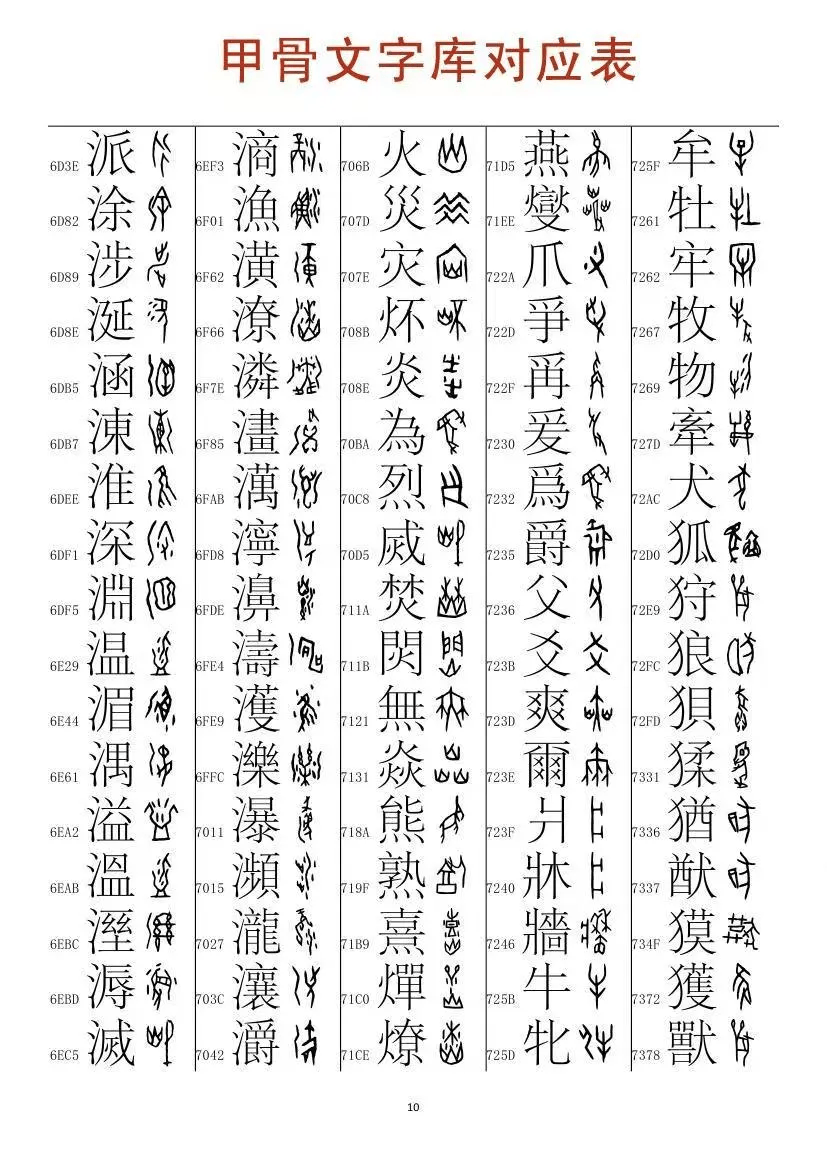 甲骨文字库对应表
6D3E 派
6D82 涂
6D89 涉
6D8E 涎
6DB5 涵
6DB7 涷
6DEE 淮
6DF1 深
6DF5 淵
6E29 温
6E44 湄
6E61 湡
6EA2 溢
6EAB 溫
6EBC 溼
6EBD 溽
6EC5 滅
6EF3 滳
6F01 漁
6F62 潢
6F66 潦
6F7E 潾
6F85 澅
6FAB 澫
6FD8 濘
6FDE 濞
6FE4 濤
6FE9 濩
6FFC 濼
7011 瀑
7015 瀕
7027 瀧
703C 瀼
7042 灂
706B 火
707D 災
707E 灾
708B 炋
708E 炎
70BA 為
70C8 烈
70D5 烕
711A 焚
711B 焛
7121 無
7131 焱
718A 熊
719F 熟
71B9 熹
71C0 燀
71CE 燎
71D5 燕
71EE 燮
722A 爪
722D 爭
722F 爯
7230 爰
7232 爲
7235 爵
7236 父
723B 爻
723D 爽
723E 爾
723F 爿
7240 牀
7246 牆
725B 牛
725D 牝
725F 牟
7261 牡
7262 牢
7267 牧
7269 物
727D 牽
72AC 犬
72D0 狐
72E9 狩
72FC 狼
72FD 狽
7331 猱
7336 猶
7337 猷
734F 獏
7372 獲
7378 獸
10